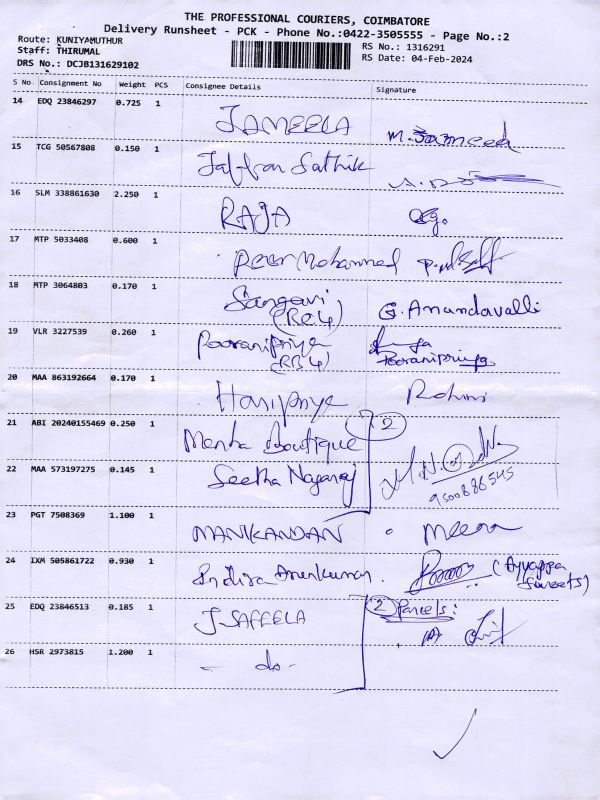 THE PROFESSIONAL COURIERS, COIMBATORE
Delivery Runsheet - PCK - Phone No.:0422-3505555 - Page No.:2
Route: KUNIYAMUTHUR
RS No.: 1316291
Staff: THIRUMAL
RS Date: 04-Feb-2024
DRS No.: DCJB131629102
S No Consignment No Weight PCS Consignee Details Signature
14 EDQ 23846297 0.725 1 JAMEELA M. Jameela
15 TCG 50567808 0.150 1 Jaffran Sathik
16 SLM 338861630 2.250 1 RAJA
17 MTP 5033408 0.600 1 Peer Mohammed
18 MTP 3064803 0.170 1 Sangavi G. Anandavalli
(RC4)
19 VLR 3227539 0.260 1 Pooranipriya Pooranipriya
(RB4)
20 MAA 863192664 0.170 1 Haripriya Rohini
21 ABI 20240155469 0.250 1 Menha Boutique 2
22 MAA 573197275 0.145 1 Seetha Nagaraj
9500886545
23 PGT 7508369 1.100 1 MANIKANDAN Meena
24 IXM 505861722 0.930 1 Indira Arunkumar. (Ayyappa
Sweets)
25 EDQ 23846513 0.185 1 J SAFEELA 2 Parcels:
26 HSR 2973815 1.200 1 - do -